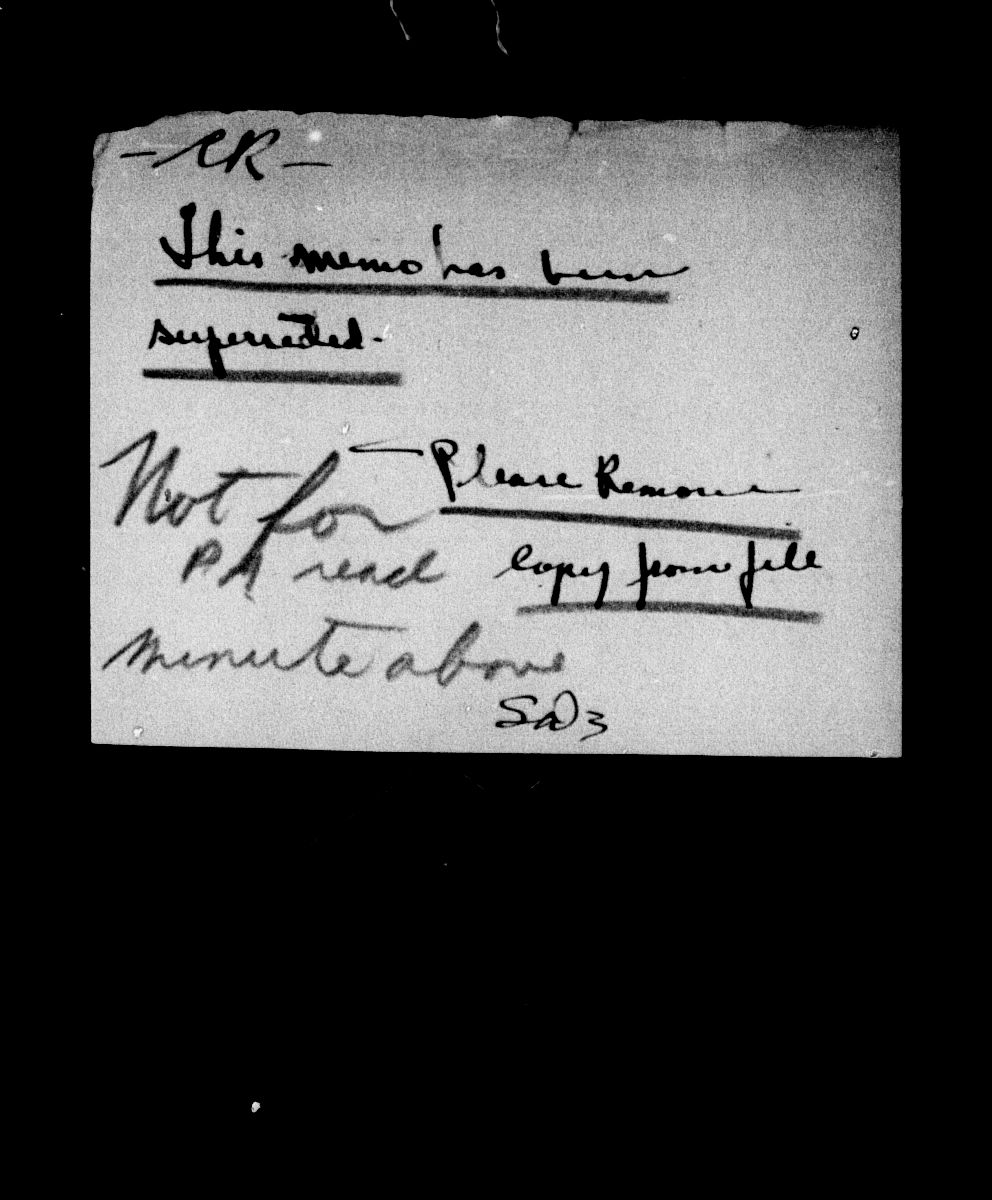 - CR -
This memo has been
superseded.
— Please Remove
copy from file
Not for
PA read
minute above